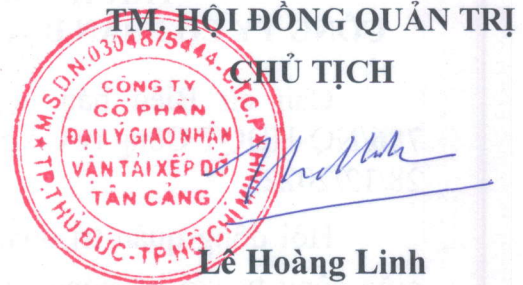 TM. HỘI ĐỒNG QUẢN TRỊ
CHỦ TỊCH
M.S.D.N:0304875444-C.T.C.P
CÔNG TY
CỔ PHẦN
ĐẠI LÝ GIAO NHẬN
VẬN TẢI XẾP DỠ
TÂN CẢNG
TP.THỦ ĐỨC-TP.HỒ CHÍ MINH
Lê Hoàng Linh